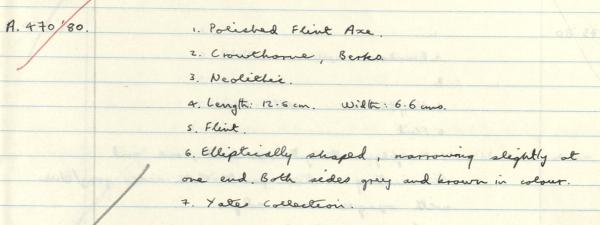 A. 470'80.
1. Polished Flint Axe.
2. Crowthorne, Berks.
3. Neolithic.
4. Length: 12.6 cm. Width: 6.6 cms.
5. Flint.
6. Elliptically shaped, narrowing slightly at
one end. Both sides grey and brown in colour.
7. Yates Collection.